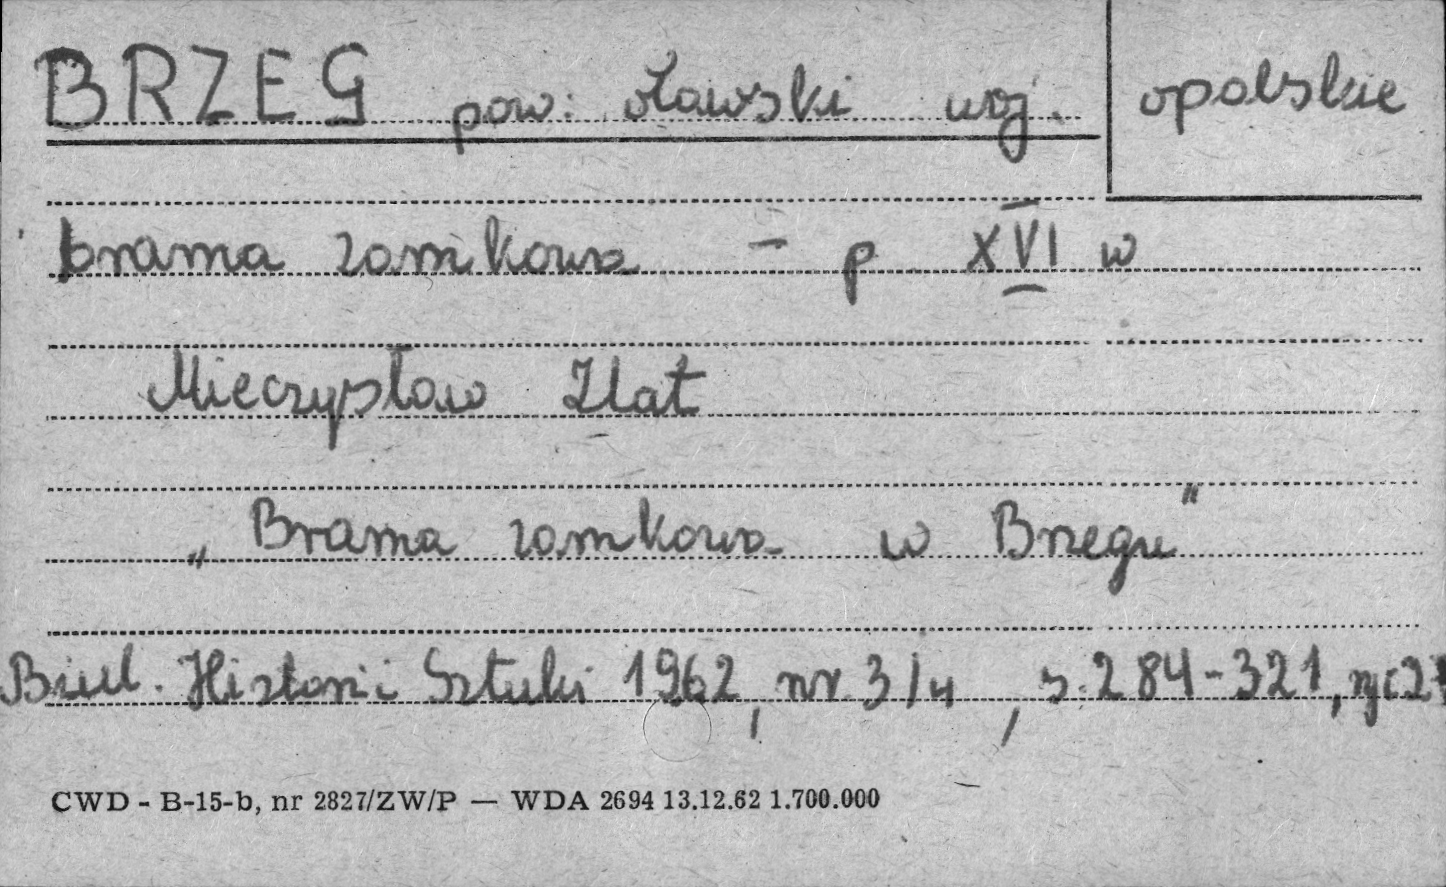 BRZEG pow. oławski woj. opolskie
brama zamkowa – p XVI w
Mieczysław Zlat
„Brama zamkowa w Brzegu"
Biul. Historii Sztuki 1962, nr 3/4, s. 284-321,
CWD - B-15-b, nr 2827/ZW/P — WDA 2694 13.12.62 1.700.000